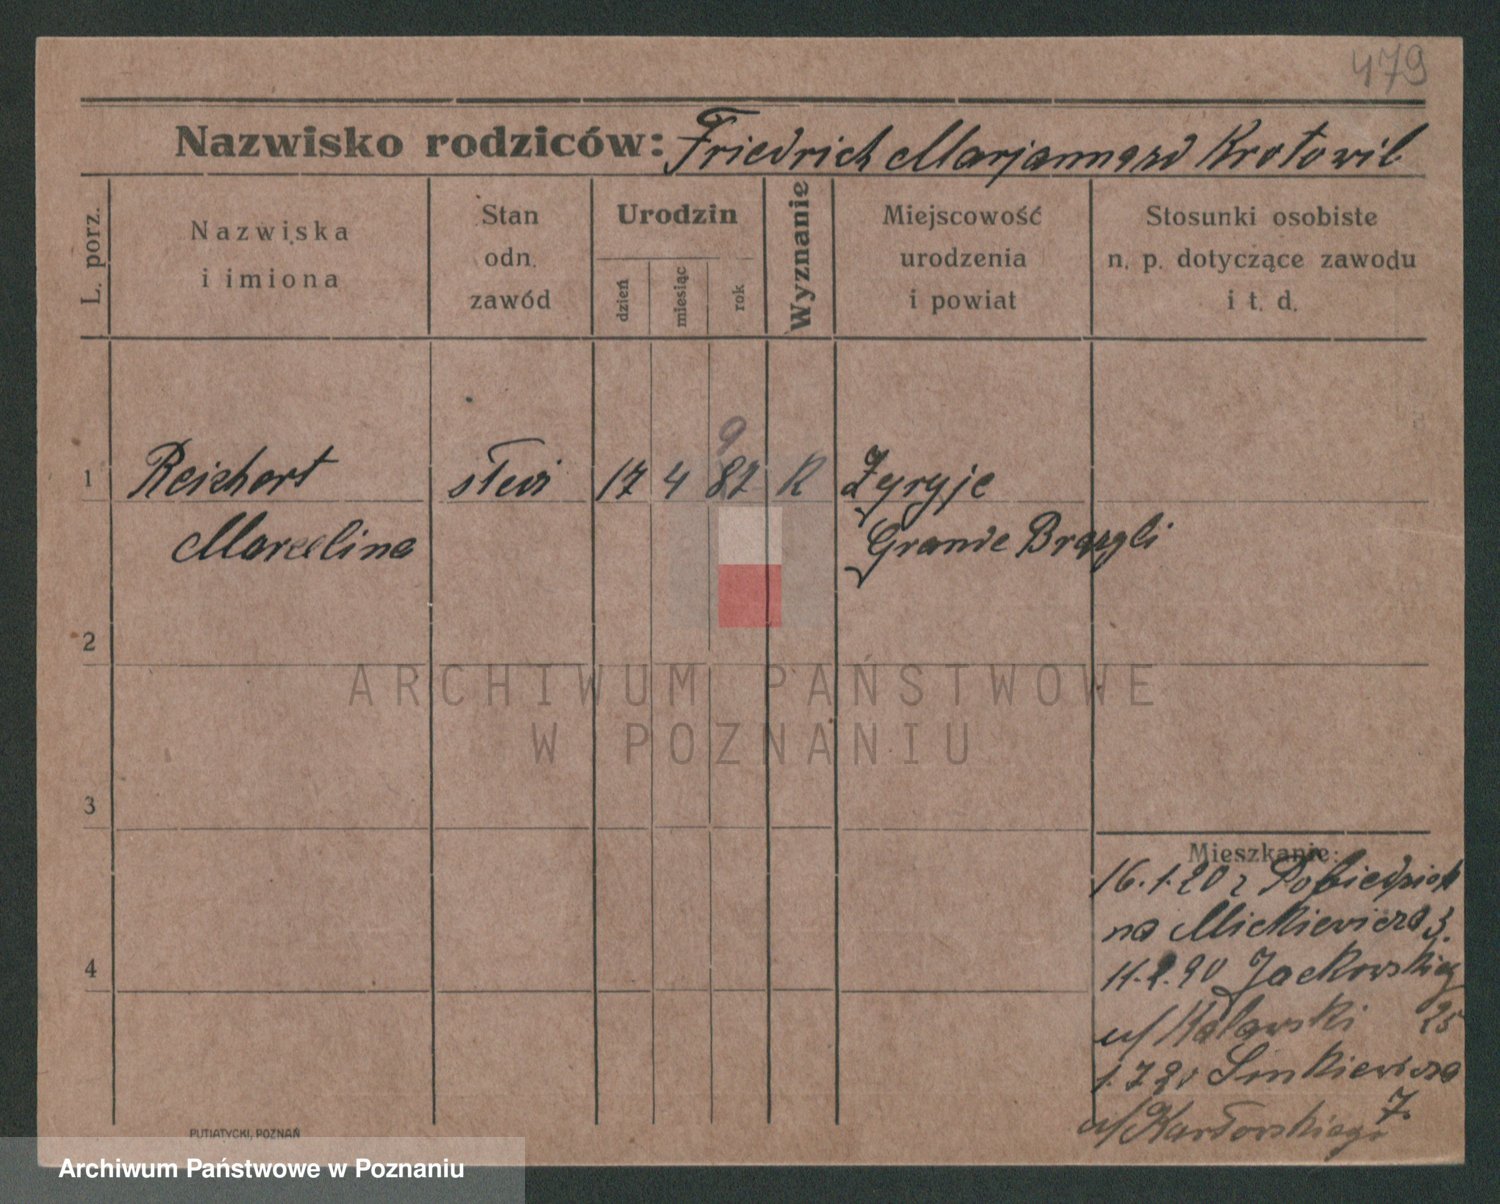 479
Nazwisko rodziców: Friedrich Marjanna zd Krotowil
L. porz.
Nazwiska i imiona
Stan odn. zawód
Urodzin
dzień
miesiąc
rok
Wyznanie
Miejscowość urodzenia i powiat
Stosunki osobiste n. p. dotyczące zawodu i t. d.
9
1 Reichert 17 4 82 K
Marcelina Grande
2
ARCHIWUM PAŃSTWOWE
W POZNANIU
3
Mieszkanie:
16.1.20 z
na Mickiewicza 3.
4 11.2.20 Jackowskieg
u/ 25
1.7.20 Sinkiewicza
7.
u/
PUTIATYCKI, POZNAŃ
Archiwum Państwowe w Poznaniu